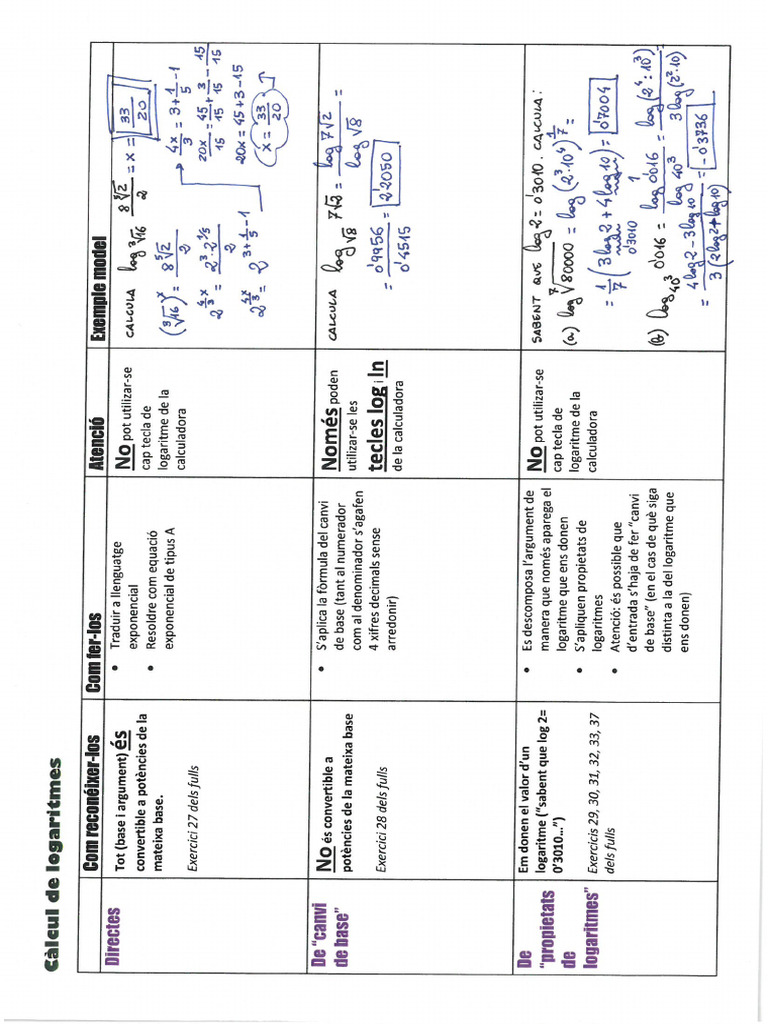 Càlcul de logaritmes
Com reconéixer-los
Com fer-los
Atenció
Exemple model
Directes
Tot (base i argument) és
convertible a potències de la
mateixa base.
Exercici 27 dels fulls
• Traduir a llenguatge
exponencial
• Resoldre com equació
exponencial de tipus A
No pot utilizar-se
cap tecla de
logaritme de la
calculadora
CALCULA log ∛16 (8 ⁵√2)/2 = x = 33/20
(∛16)^x = (8 ⁵√2)/2
2^(4x/3) = (2³·2^(1/5))/2
2^(4x/3) = 2^(3+1/5-1)
4x/3 = 3+1/5-1
20x/15 = 45/15+3/15-15/15
20x = 45+3-15
x = 33/20
De "canvi
de base"
No és convertible a
potències de la mateixa base
Exercici 28 dels fulls
• S'aplica la fòrmula del canvi
de base (tant al numerador
com al denominador s'agafen
4 xifres decimals sense
arredonir)
Només poden
utilizar-se les
tecles log i ln
de la calculadora
CALCULA log √8 7√2 = log 7√2 / log √8 =
= 0'9956 / 0'4515 = 2'2050
De
"propietats
de
logaritmes"
Em donen el valor d'un
logaritme ("sabent que log 2=
0'3010...")
Exercicis 29, 30, 31, 32, 33, 37
dels fulls
• Es descomposa l'argument de
manera que només aparega el
logaritme que ens donen
• S'apliquen propietats de
logaritmes
• Atenció: és possible que
d'entrada s'haja de fer "canvi
de base" (en el cas de què siga
distinta a la del logaritme que
ens donen)
No pot utilizar-se
cap tecla de
logaritme de la
calculadora
SABENT QUE log 2 = 0'3010. CALCULA:
(a) log ⁷√80000 = log (2³·10⁴)^(1/7) =
= 1/7 (3 log 2 + 4 log 10) = 0'7004
0'3010 1
(b) log 40³ 0'016 = log 0'016 / log 40³ = log (2⁴:10³) / 3 log (2²·10) =
= (4 log 2 - 3 log 10) / 3 (2 log 2 + log 10) = -0'3736